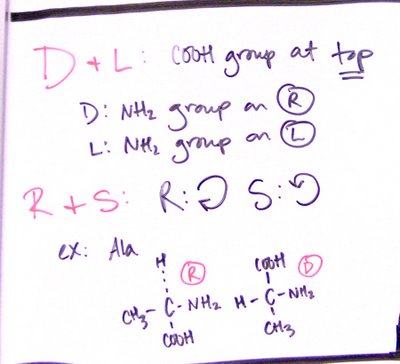 D + L: COOH group at top
D: NH2 group on R
L: NH2 group on L
R + S: R: S:
ex: Ala
H R COOH D
CH3 - C - NH2 H - C - NH2
COOH CH3